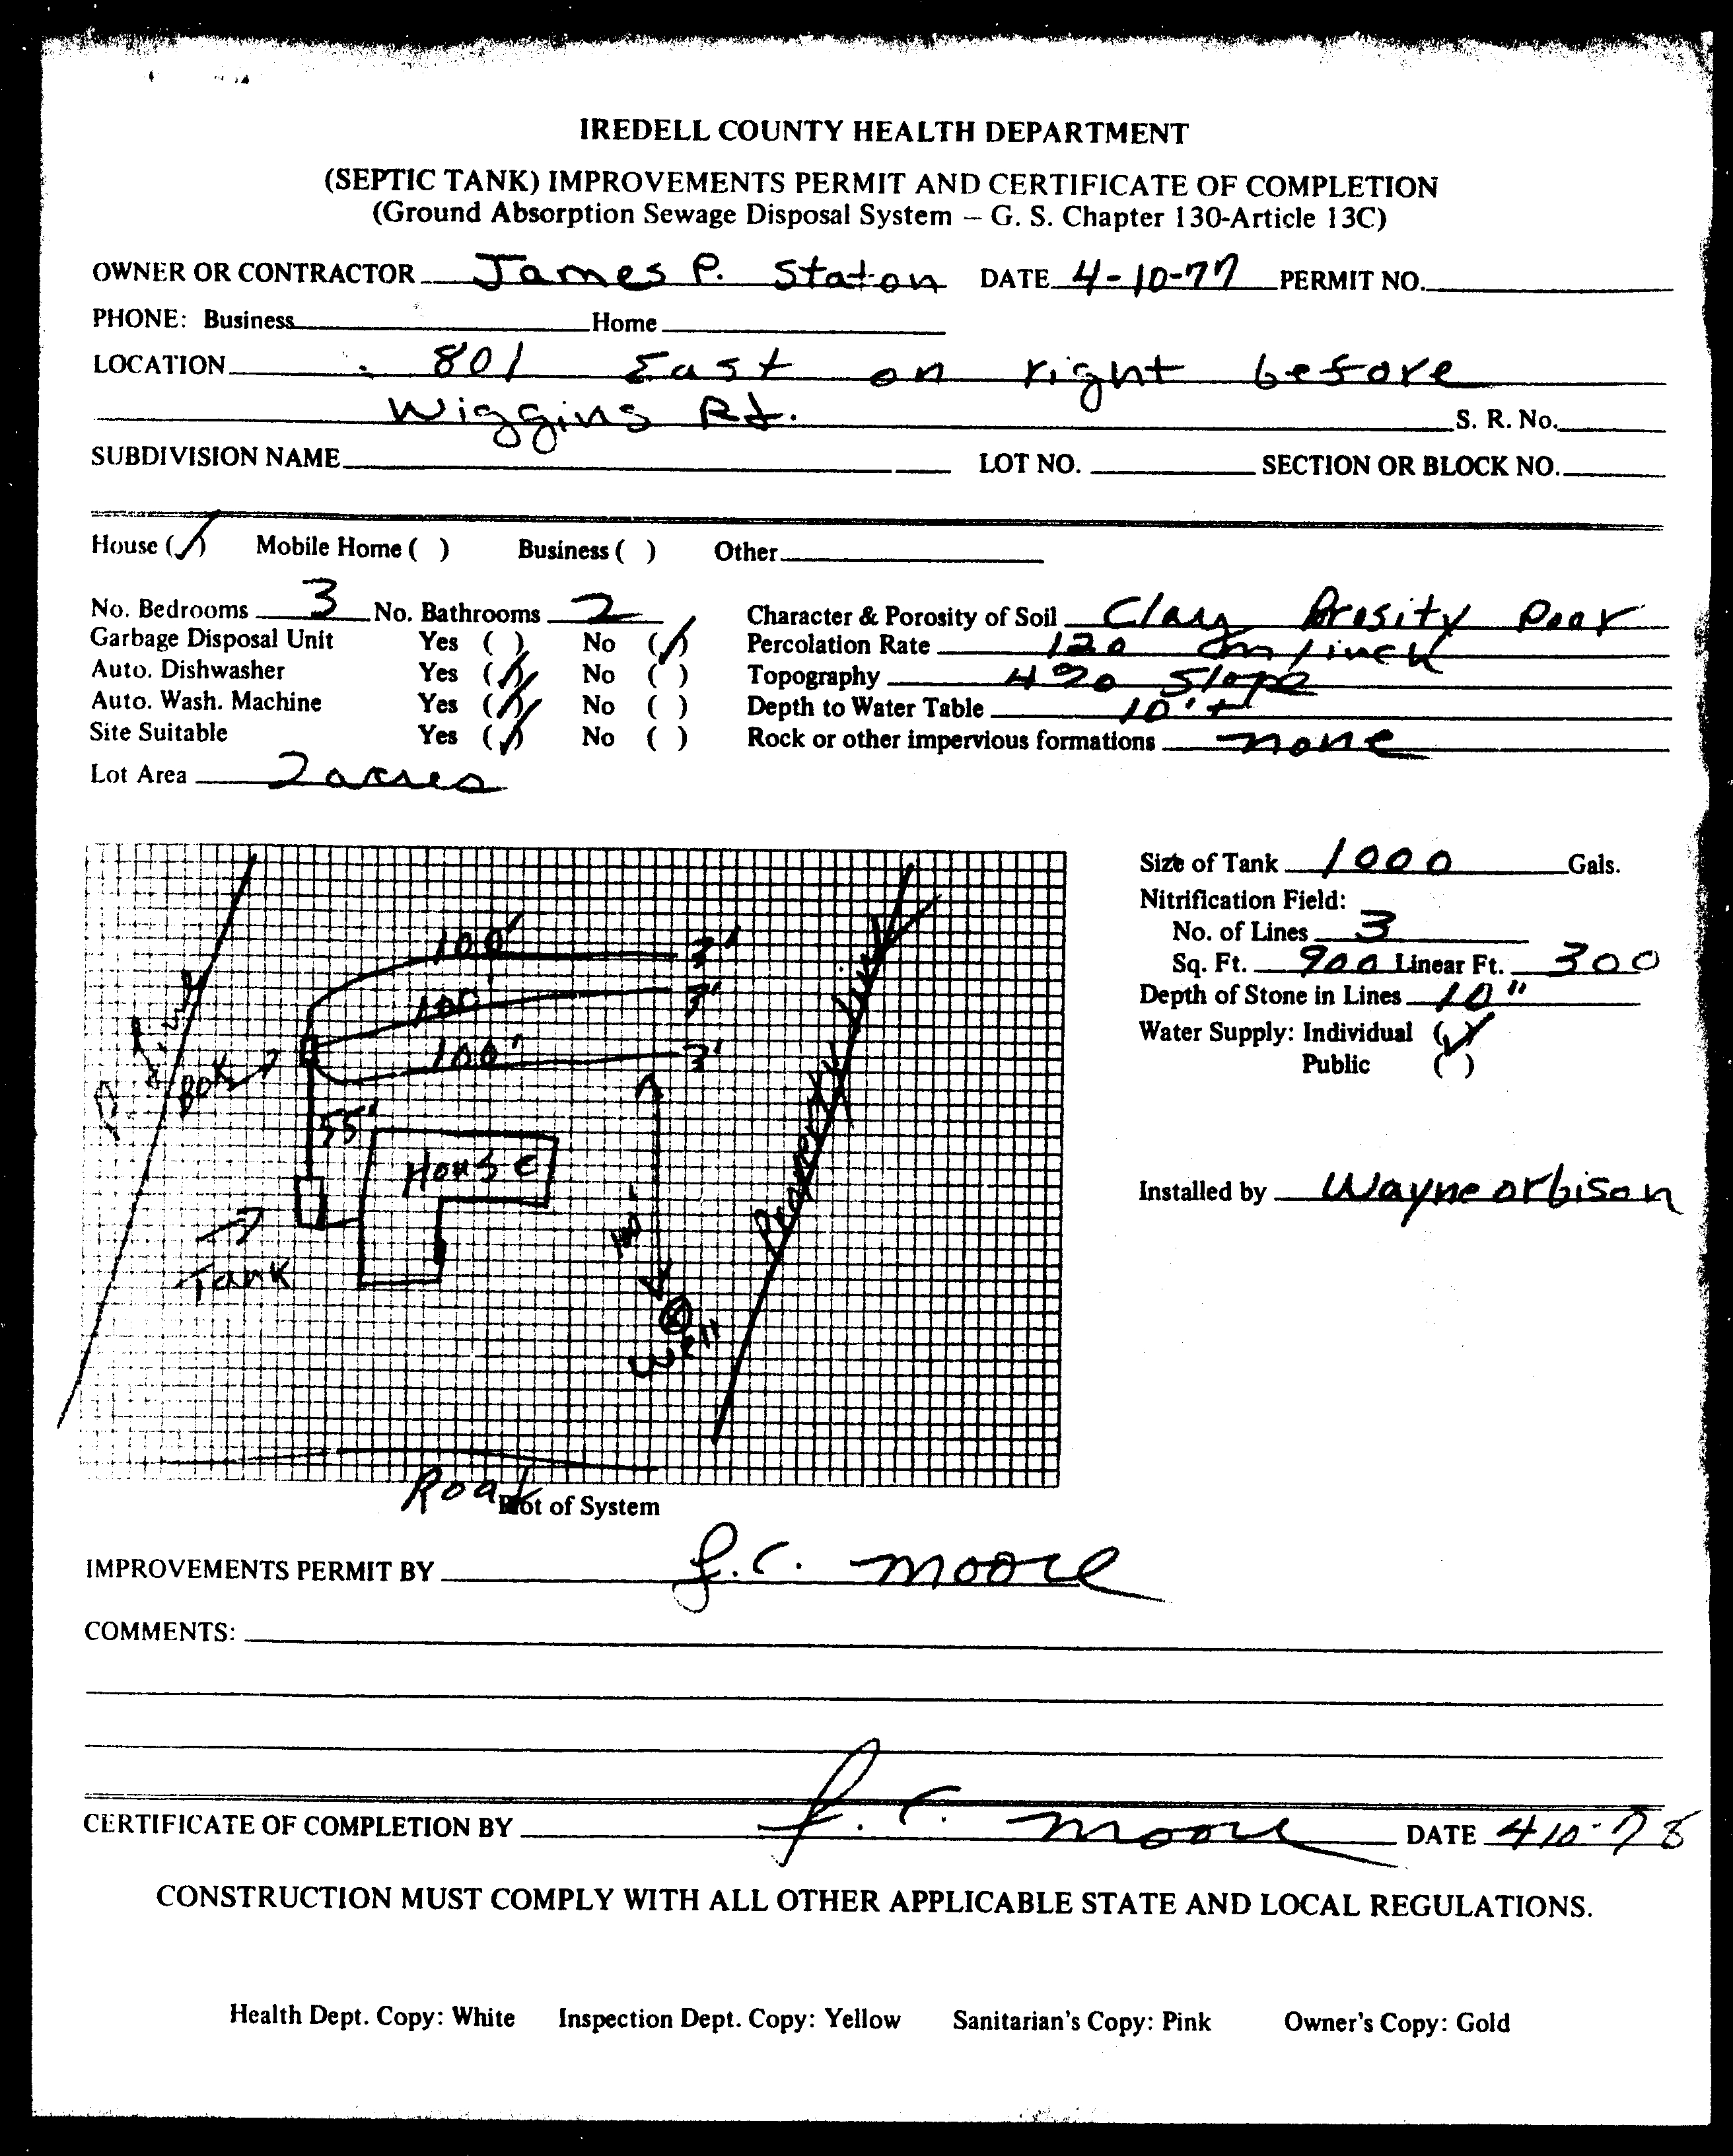 IREDELL COUNTY HEALTH DEPARTMENT
(SEPTIC TANK) IMPROVEMENTS PERMIT AND CERTIFICATE OF COMPLETION
(Ground Absorption Sewage Disposal System – G. S. Chapter 130-Article 13C)
OWNER OR CONTRACTOR James P. Staton DATE 4-10-77 PERMIT NO.
PHONE: Business Home
LOCATION 801 East on right before
Wiggins Rd. S. R. No.
SUBDIVISION NAME LOT NO. SECTION OR BLOCK NO.
House (✓) Mobile Home ( ) Business ( ) Other
No. Bedrooms 3 No. Bathrooms 2 Character & Porosity of Soil Clay Prosity Poor
Garbage Disposal Unit Yes ( ) No (✓) Percolation Rate 120 m/inch
Auto. Dishwasher Yes (✓) No ( ) Topography 4% Slope
Auto. Wash. Machine Yes (✓) No ( ) Depth to Water Table 10'+
Site Suitable Yes (✓) No ( ) Rock or other impervious formations none
Lot Area 2 acres
Size of Tank 1000 Gals.
Nitrification Field:
No. of Lines 3
Sq. Ft. 900 Linear Ft. 300
Depth of Stone in Lines 10"
Water Supply: Individual (✓)
Public ( )
Installed by Wayne Orbison
100' 3'
100' 3'
100' 3'
Box
55'
House
Tank
100'
Well
Property Line
Road
Plot of System
IMPROVEMENTS PERMIT BY J.C. Moore
COMMENTS:
CERTIFICATE OF COMPLETION BY J.C. Moore DATE 4-10-78
CONSTRUCTION MUST COMPLY WITH ALL OTHER APPLICABLE STATE AND LOCAL REGULATIONS.
Health Dept. Copy: White Inspection Dept. Copy: Yellow Sanitarian's Copy: Pink Owner's Copy: Gold